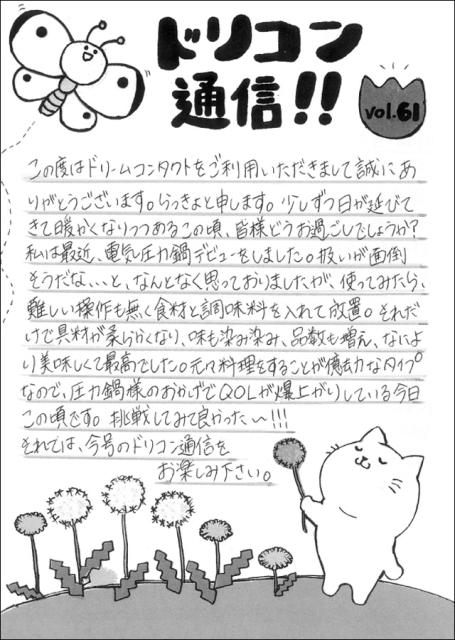 ドリコン
通信!!
vol.61
この度はドリームコンタクトをご利用いただきまして誠にあ
りがとうございます。らっきょと申します。少しずつ日が延びて
きて暖かくなりつつあるこの頃、皆様どうお過ごしでしょうか?
私は最近、電気圧力鍋デビューをしました。扱いが面倒
そうだな、、、と、なんとなく思っておりましたが、使ってみたら、
難しい操作も無く食材と調味料を入れて放置。それだ
けで具材が柔らかくなり、味も染み染み、品数も増え、なによ
り美味しくて最高でした。元々料理をすることが億劫なタイプ
なので、圧力鍋様のおかげでQOLが爆上がりしている今日
この頃です。挑戦してみて良かった〜!!!
それでは、今号のドリコン通信を
お楽しみ下さい。